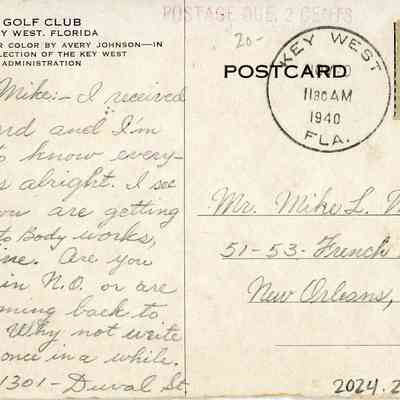 GOLF CLUB
Y WEST, FLORIDA
R COLOR BY AVERY JOHNSON—IN
LLECTION OF THE KEY WEST
ADMINISTRATION
POSTAGE DUE, 2 CENTS
20-
POSTCARD
KEY WEST
1130 AM
1940
FLA.
Mike:- I received
ard and I'm
to know every-
s alright. I see
you are getting
to Body works,
ine. Are you
in N.O. or are
ming back to
Why not write
once in a while.
1301- Duval St
Mr. Mike L.
51-53- French
New Orleans,
2024.2